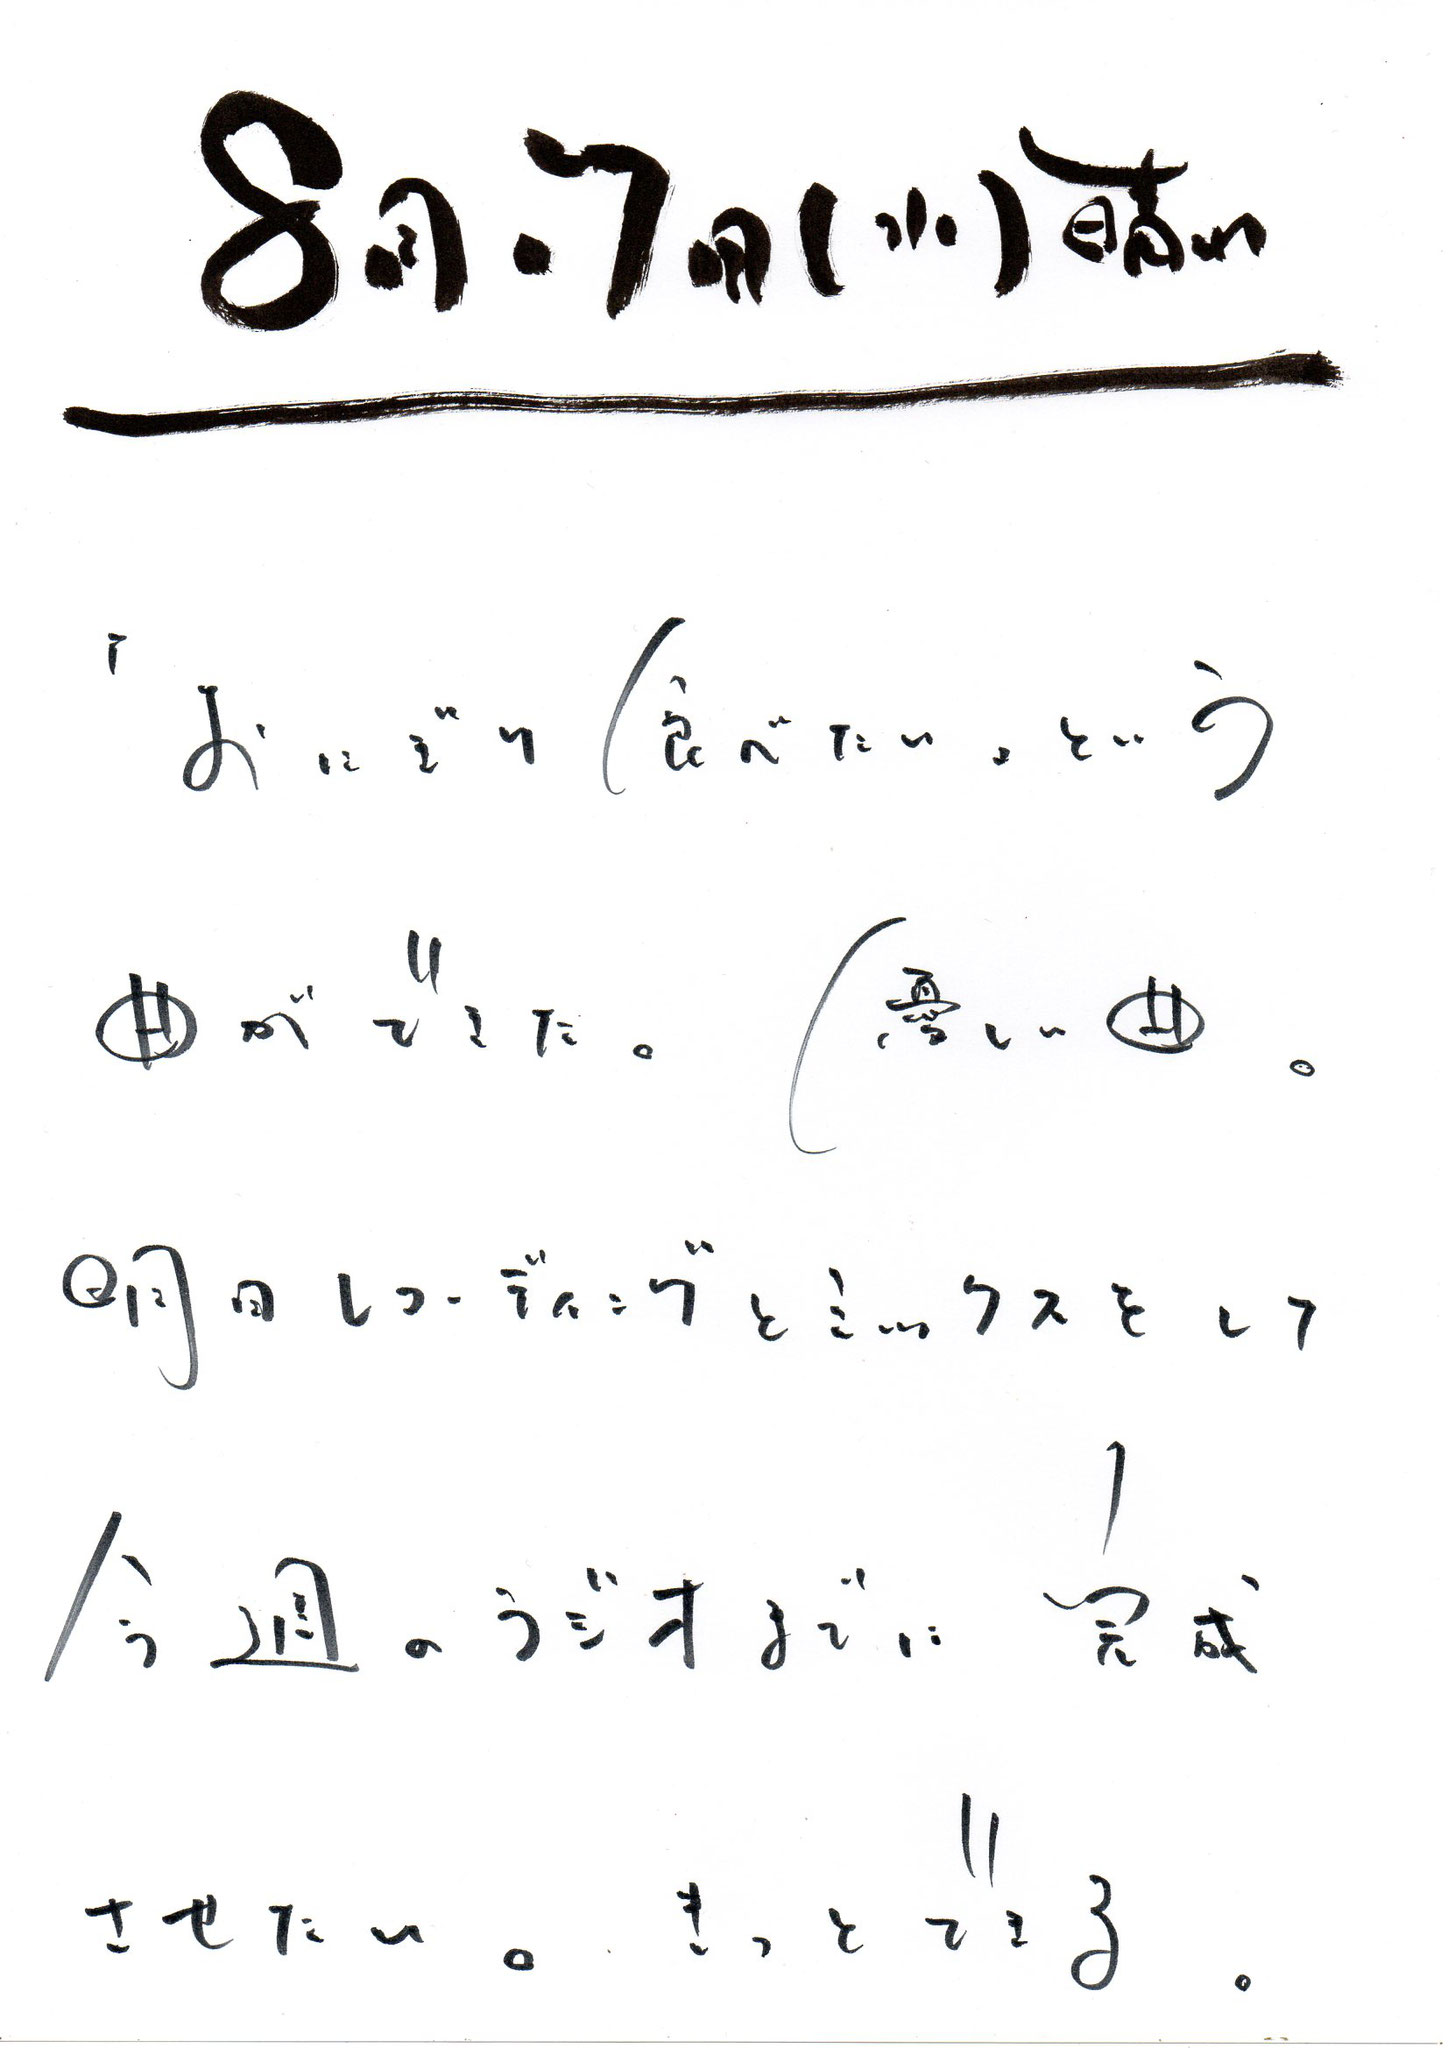 8月・7日(水)晴れ
「おにぎり食べたい」という
曲ができた。優しい曲。
明日レコーディングとミックスをして
今週のラジオまでに完成
させたい。きっとできる。